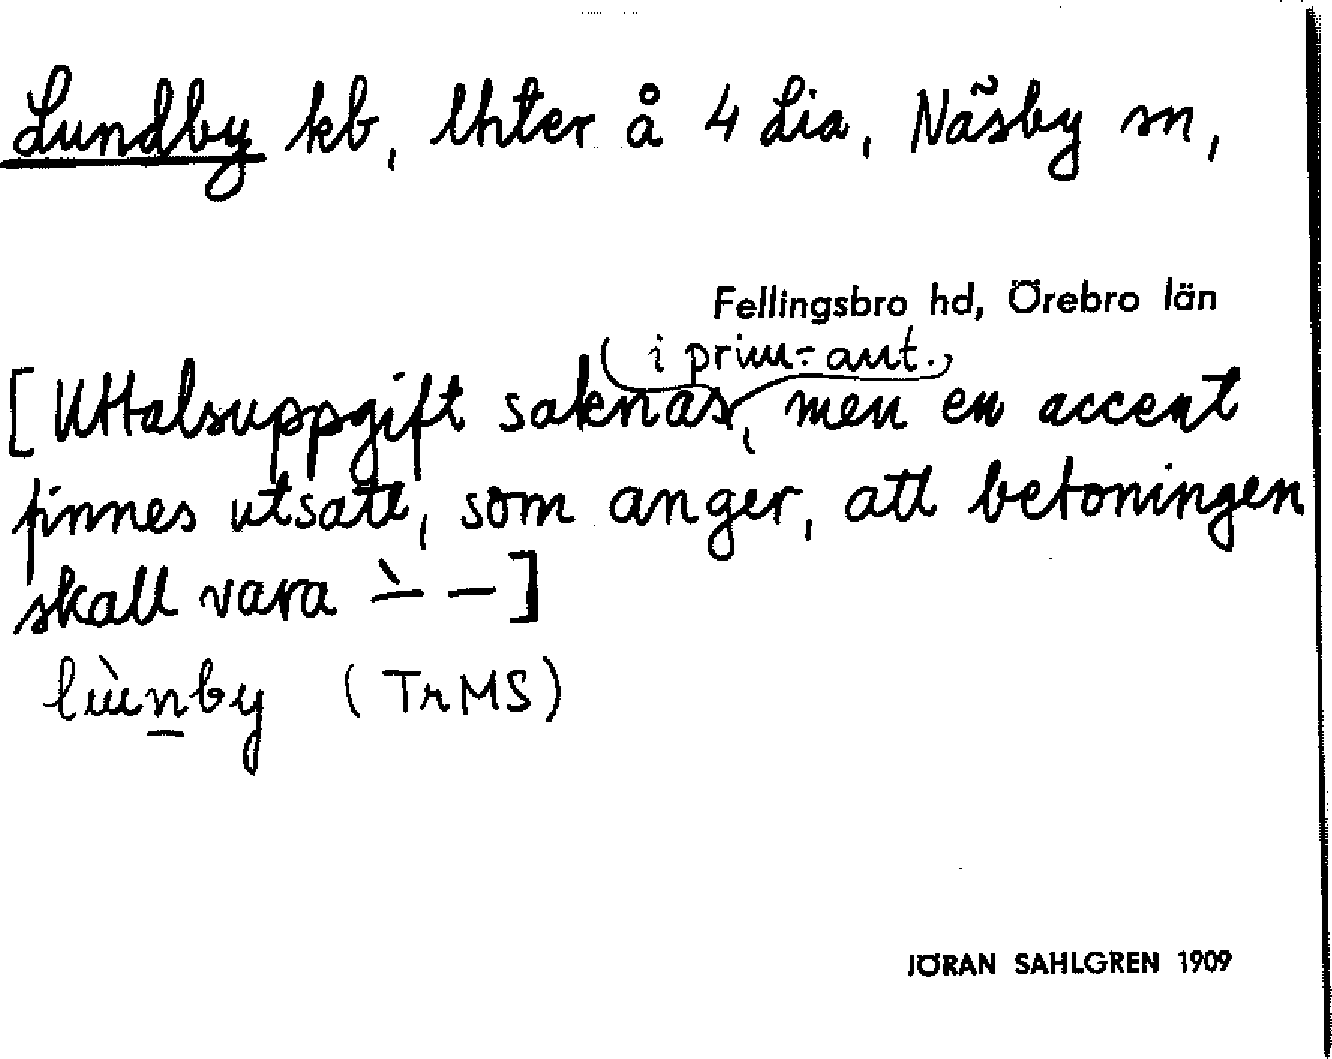 Lundby kb, lhter å 4 Lia, Näsby sn,
Fellingsbro hd, Örebro län
i prim.-ant.,
[Uttalsuppgift saknas, men en accent
finnes utsatt, som anger, att betoningen
skall vara ̀– –]
lùnby (TrMS)
JÖRAN SAHLGREN 1909